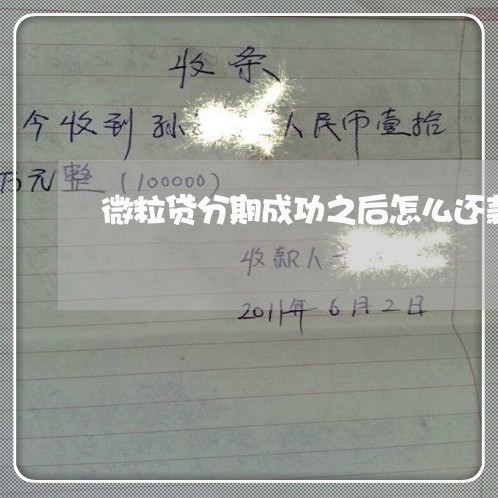 收条
今收到孙 人民币壹拾
万元整(100000)
微粒贷分期成功之后怎么还款
收款人
2011年6月2日